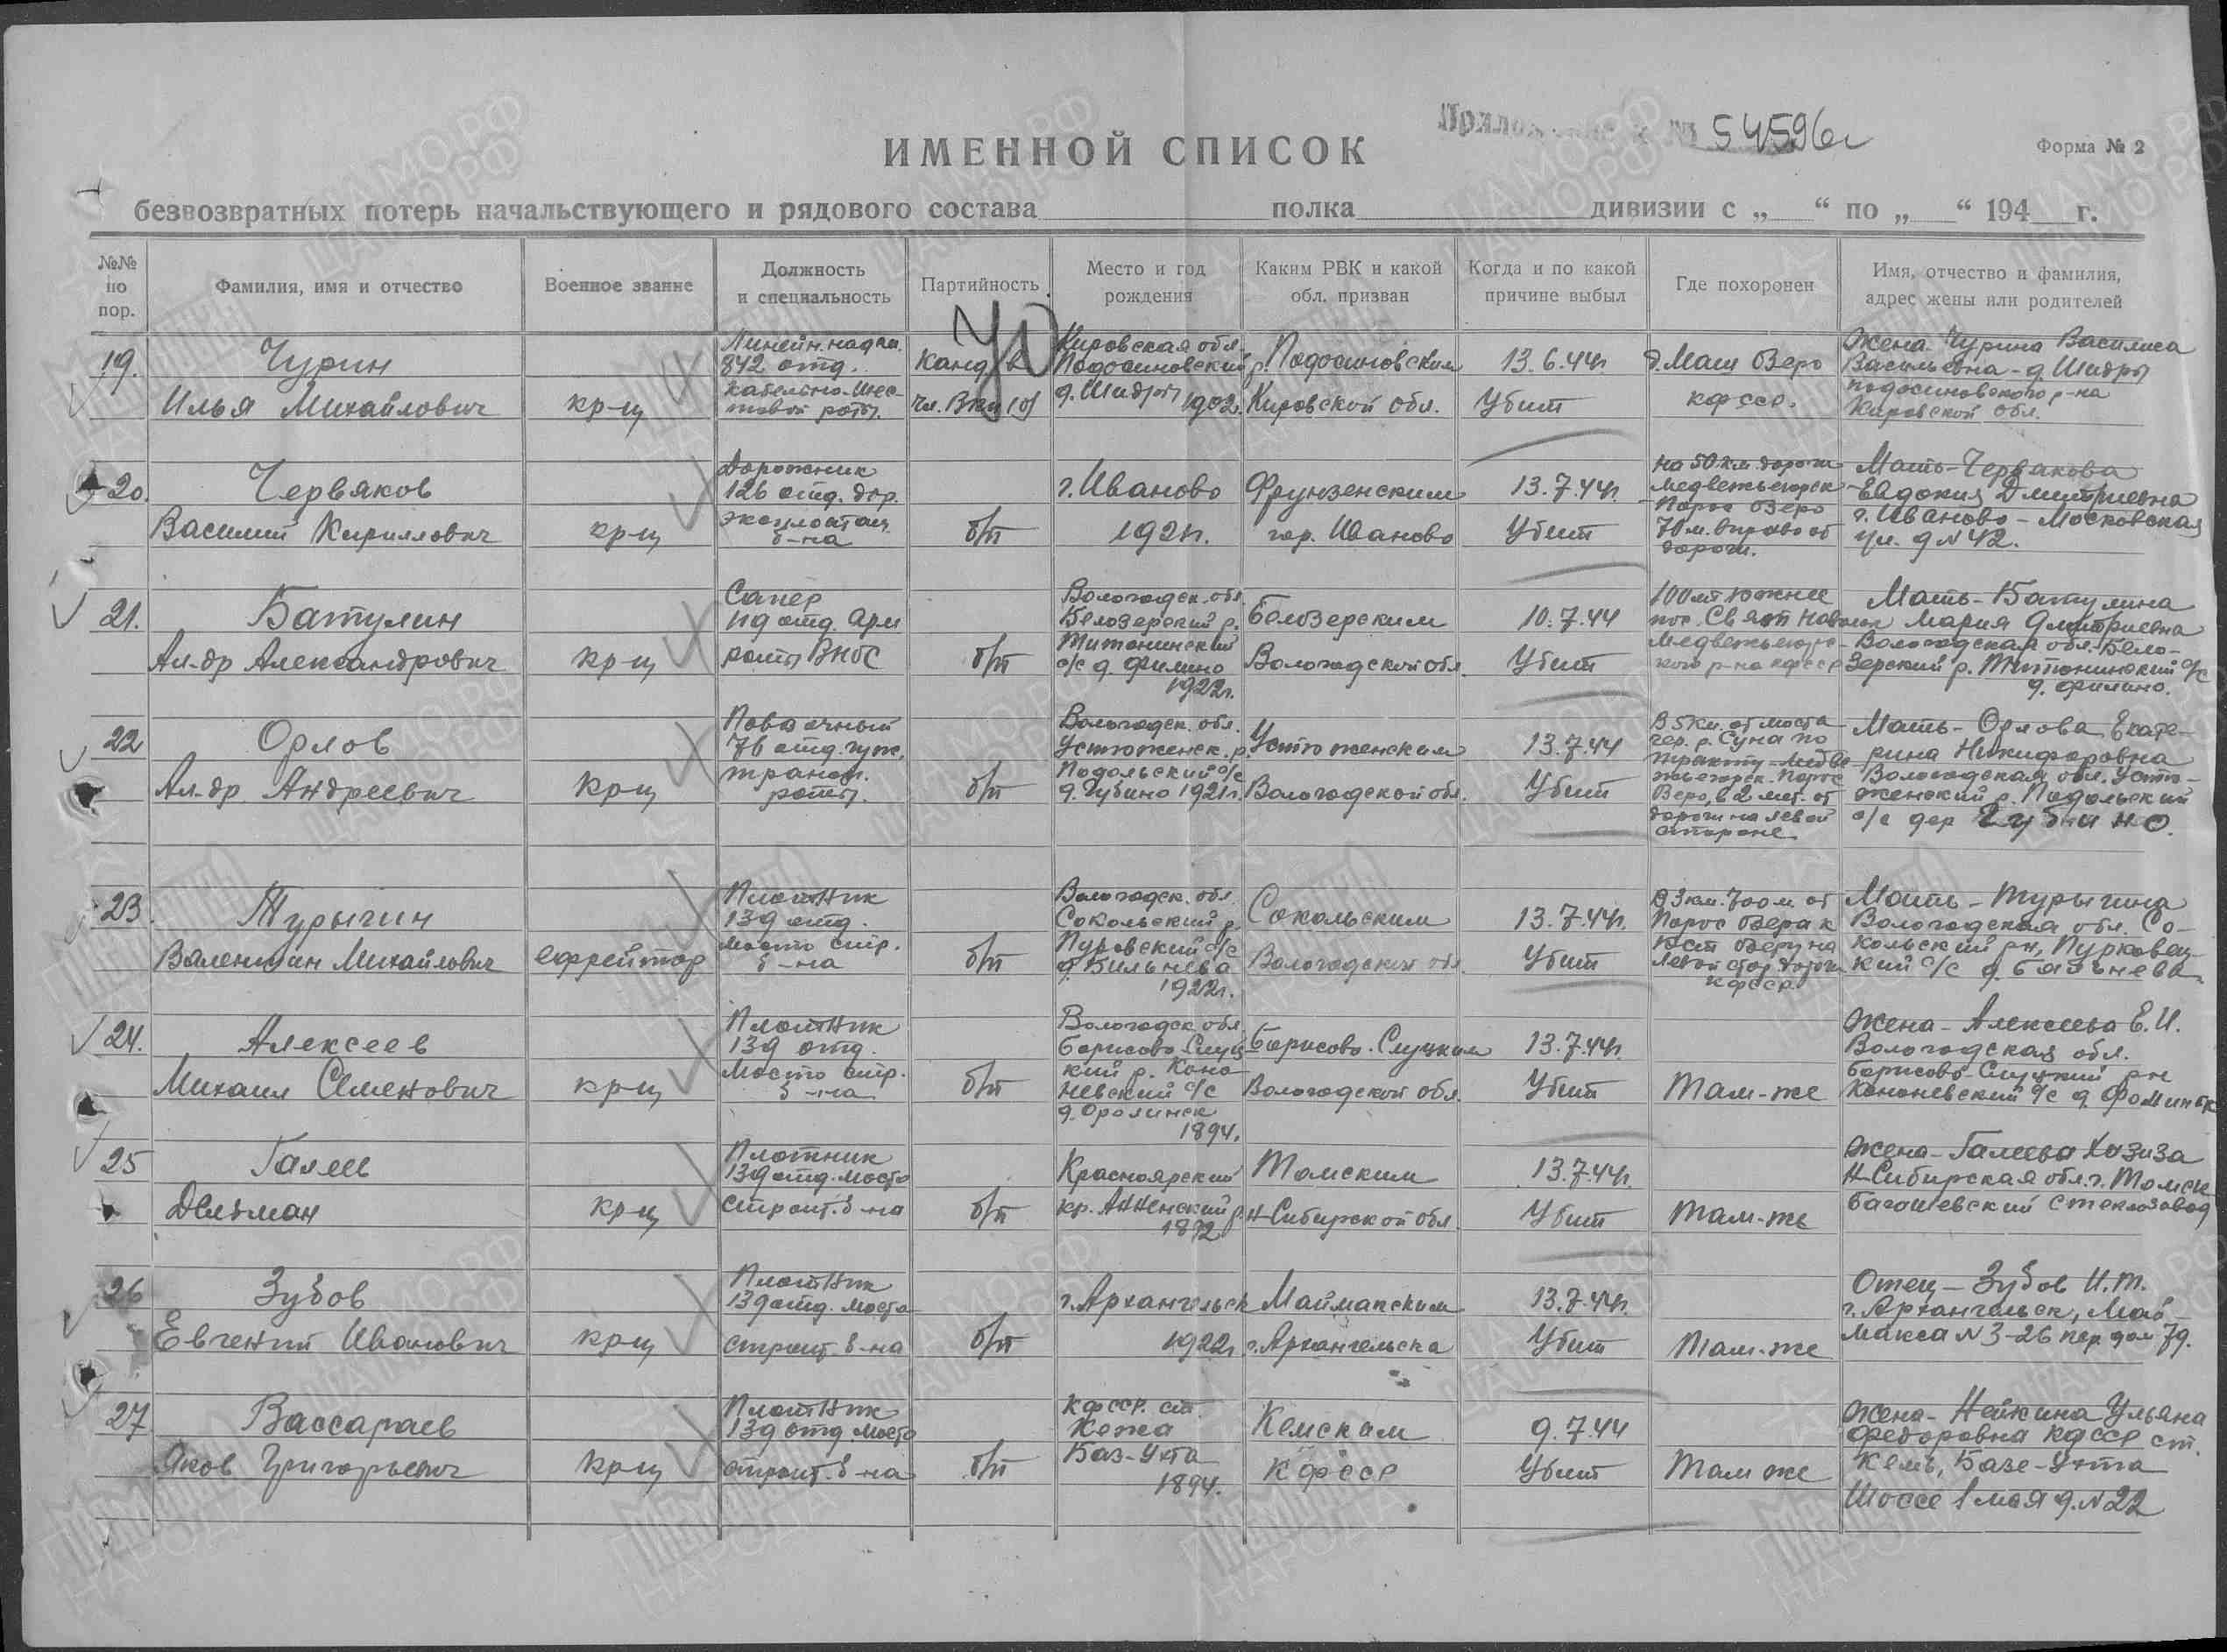 Приложение к № 54596с
ИМЕННОЙ СПИСОК
Форма № 2
безвозвратных потерь начальствующего и рядового состава полка дивизии с „ “ по „ “ 194 г.
№№ по пор.
Фамилия, имя и отчество
Военное звание
Должность и специальность
Партийность
Место и год рождения
Каким РВК и какой обл. призван
Когда и по какой причине выбыл
Где похоронен
Имя, отчество и фамилия, адрес жены или родителей
19.
Чурин
Илья Михайлович
кр-ц
Линейн. надсм.
842 отд.
кабельно-шес-
товой роты.
Канд. в
чл. ВКП(б)
Кировская обл.
Подосиновский р.
д. Шидры 1902г.
Подосиновским
Кировской обл.
13.6.44г.
Убит
д. Маш Озеро
КФССР.
Жена Чурина Василиса
Васильевна - д. Шидры
Подосиновского р-на
Кировской обл.
20.
Червяков
Василий Кириллович
кр-ц
Дорожник
126 отд. дор.
эксплоатац.
б-на
б/п
г. Иваново
1921г.
Фрунзенским
гор. Иваново
13.7.44г.
Убит
на 50 км. дороги
Медвежьегорск
-Порос Озеро
70 м. вправо от
дороги.
Мать-Червякова
Евдокия Дмитриевна
г. Иваново - Московская
ул. д N 42.
21.
Батулин
Ал-др Александрович
кр-ц
Сапер
119 отд. Арм
роты ВНОС
б/п
Вологодск. обл.
Белозерский р.
Титонинский
с/с д. Филино
1922г.
Белозерским
Вологодской обл.
10.7.44
Убит
100 мт южнее
пос. Свят Наволок
Медвежьегорс-
кого р-на КФССР
Мать-Батулина
Мария Дмитриевна
Вологодская обл. Бело-
зерский р. Титонинский с/с
д. Филино.
22
Орлов
Ал-др Андреевич
кр-ц
Повозочный
76 отд. гуж.
трансп.
роты.
б/п
Вологодск. обл.
Устюженск. р.
Подольский с/с
д. Губино 1921г.
Устюженским
Вологодской обл.
13.7.44
Убит
В 5 км. от моста
чер. р. Суна по
тракту - Медве-
жьегорск. Порос
Озеро, в 2 мет. от
дороги на левой
стороне
Мать-Орлова Екате-
рина Никифоровна
Вологодская обл. Устю-
женский р. Подольский
с/с дер Губино.
23.
Турыгин
Валентин Михайлович
ефрейтор
Плотник
139 отд.
Мосто стр.
б-на
б/п
Вологодск. обл.
Сокольский р.
1922г.
Сокольским
Вологодской обл.
13.7.44г.
Убит
В 3 км. 700 м от
Порос Озера к
левой стор. дороги
КФССР.
Мать-Турыгина
Вологодская обл. Со-
кольский рн,
24.
Алексеев
Михаил Семенович
кр-ц
Плотник
139 отд.
Мосто стр.
б-на
б/п
Вологодск. обл.
Борисово-Слуц-
кий р. Коно-
невский с/с
1894.
Борисово-Слуцким
Вологодской обл.
13.7.44г.
Убит
Там-же
Жена-Алексеева Е.И.
Вологодская обл.
Борисово-Слуцкий рн
Кононевский с/с д. Фоминск
25
Галеев
Девлман
кр-ц
Плотник
139 отд. мосто
строит. б-на
б/п
Красноярский
кр. Ачненский р.
1892
Томским
Н-Сибирской обл.
13.7.44г.
Убит
Там-же
Жена-Галеева Хазиза
Н-Сибирская обл. г. Томск
стеклозавод
26
Зубов
Евгений Иванович
кр-ц
Плотник
139 отд. мосто
строит. б-на
б/п
г. Архангельск
1922г.
Маймакским
г. Архангельска
13.7.44г.
Убит
Там-же
Отец-Зубов И.Т.
г. Архангельск, Май-
макса N 3-26 пер. дом 79.
27
Вассараев
Яков Григорьевич
кр-ц
Плотник
139 отд мосто
строит. б-на
б/п
КФССР. ст.
Баз-Ухта
1894.
Кемским
КФССР
9.7.44
Убит
Там же
Жена-Нейкина Ульяна
Федоровна КФССР ст.
Кемь, Базе-Ухта
Шоссе 1 мая д. N 22